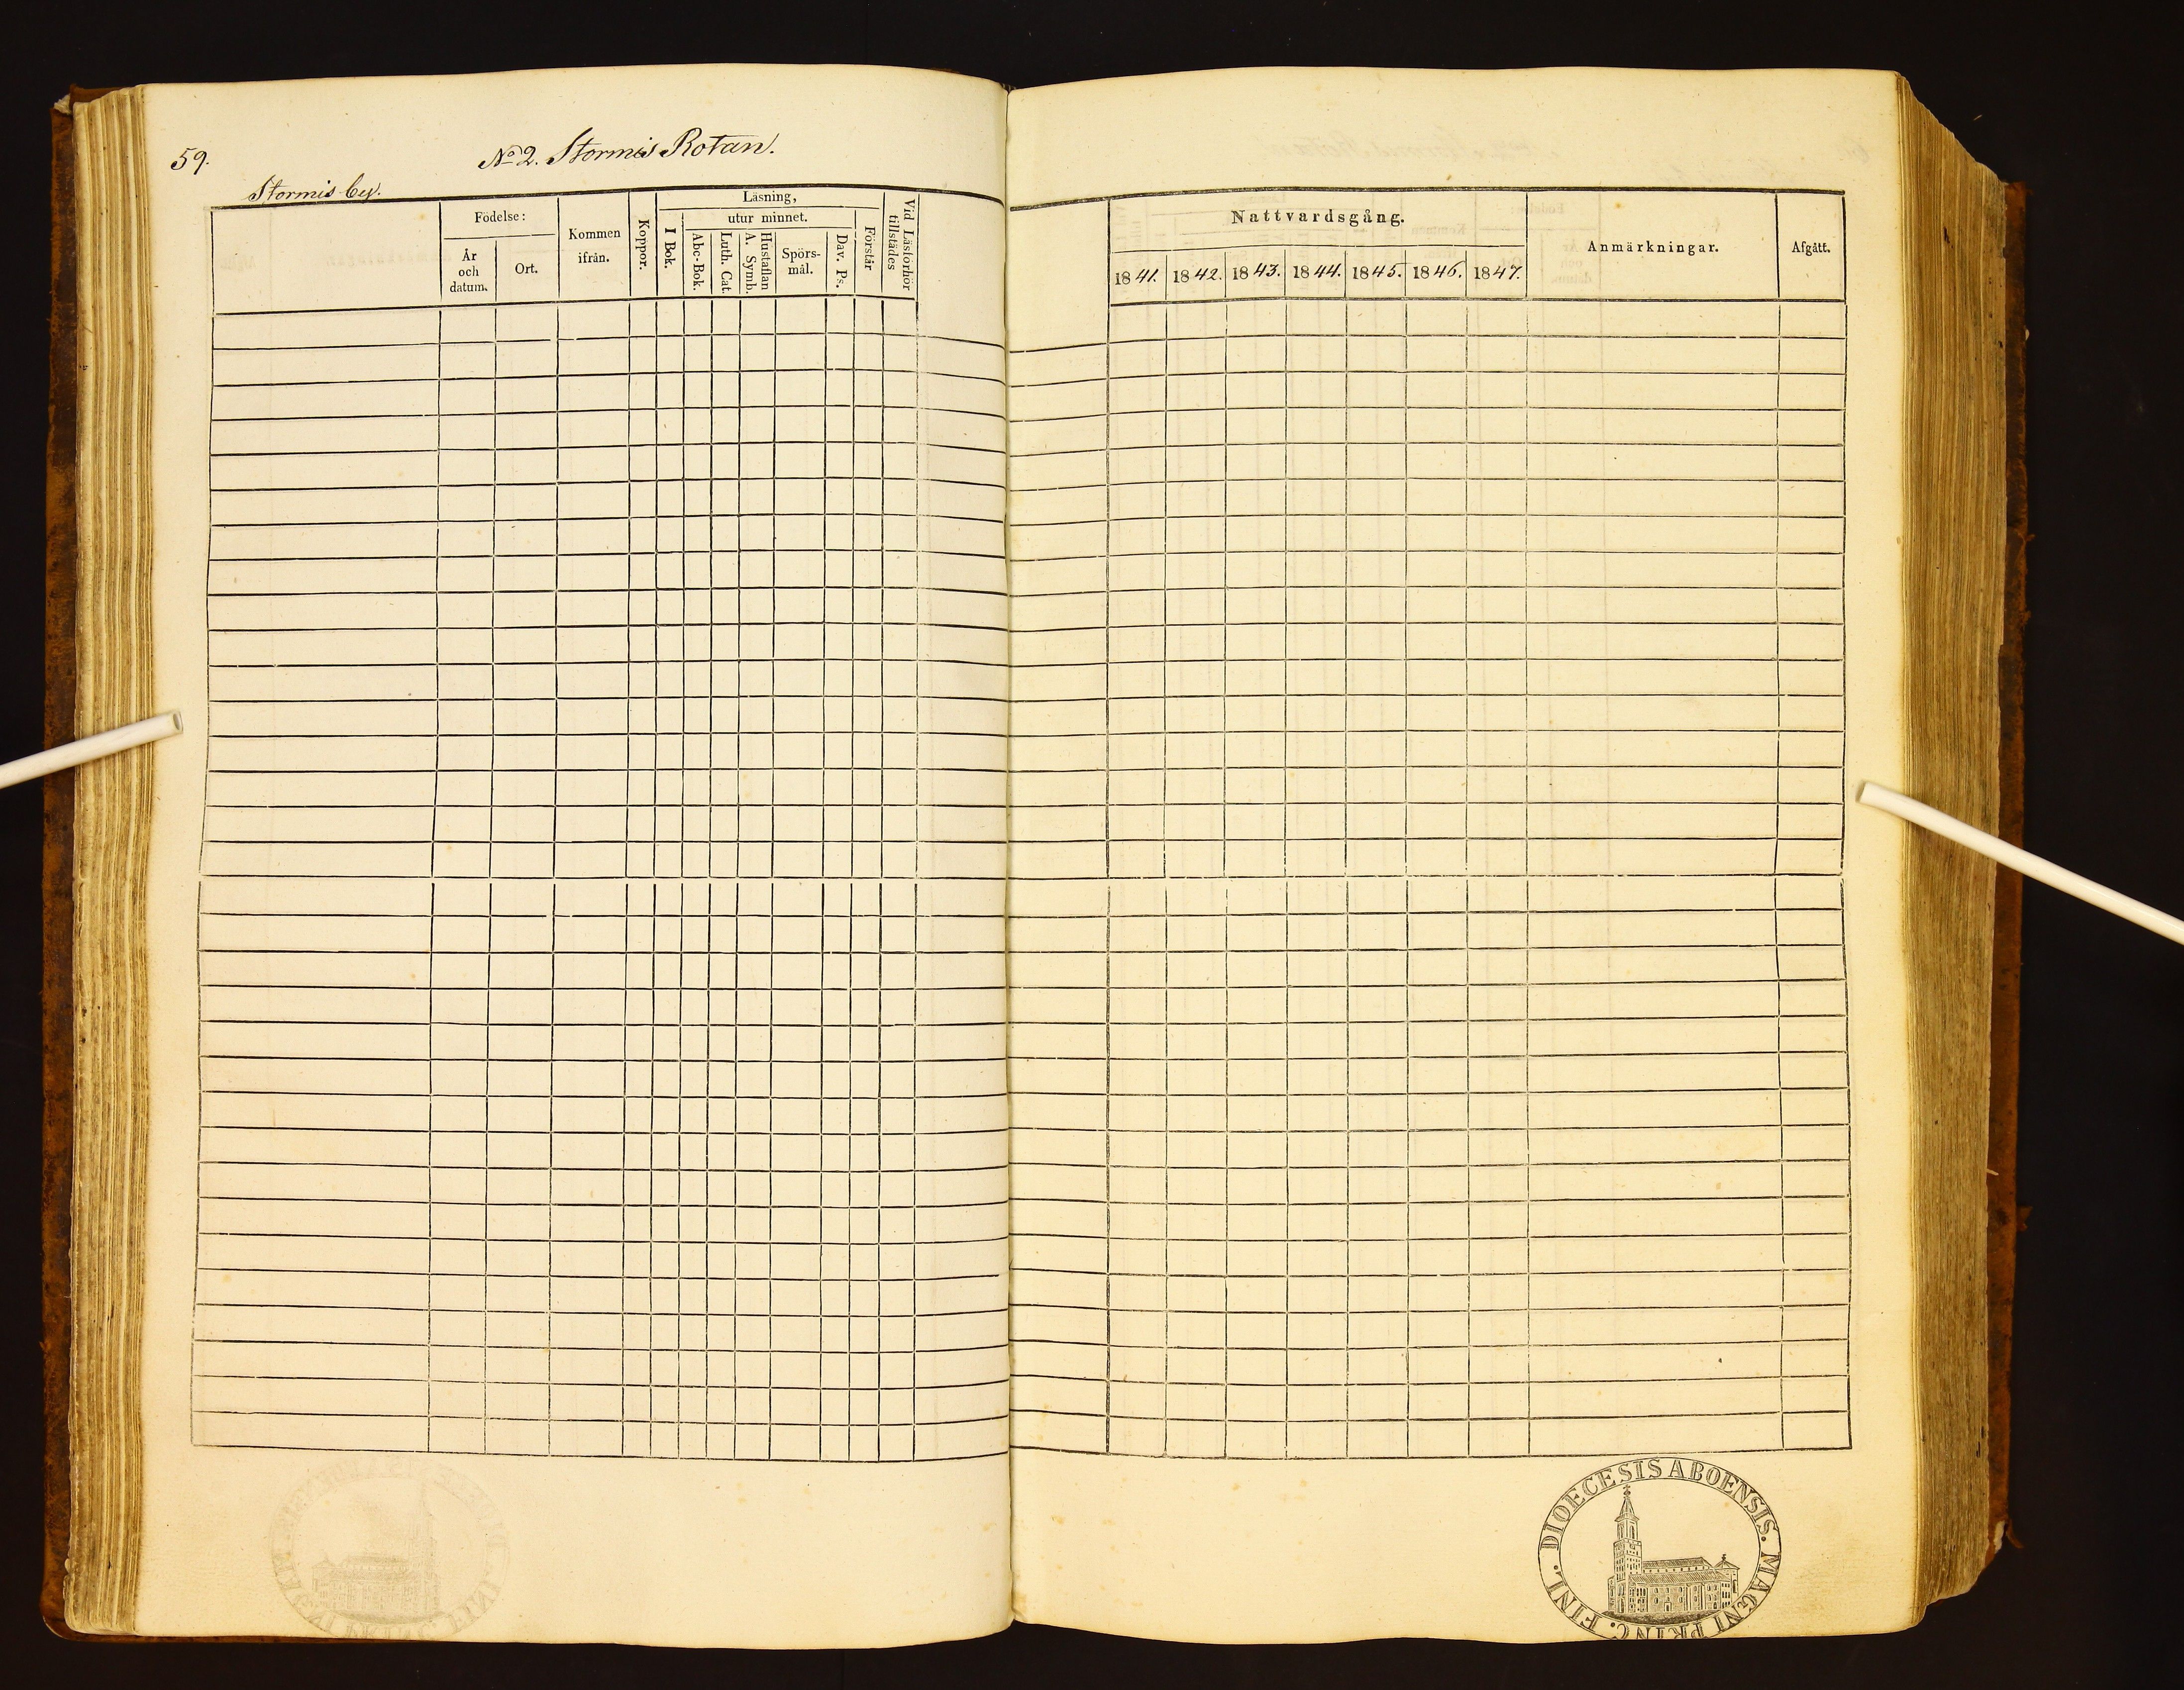 59.
No 2. Stormis Rotan.
Stormis by.
Födelse:
År och datum.
Ort.
Kommen ifrån.
Koppor.
Läsning,
I Bok.
utur minnet.
Abc-Bok.
Luth. Cat.
A. Symb. Hustaflan
Spörs-
mål.
Dav. Ps.
Förstår
Vid Läsförhör tillstädes
Nattvardsgång.
1841. 1842. 1843. 1844. 1845. 1846. 1847.
Anmärkningar.
Afgått.
DIOECESIS ABOENSIS. MAGNI PRINC. FINL.